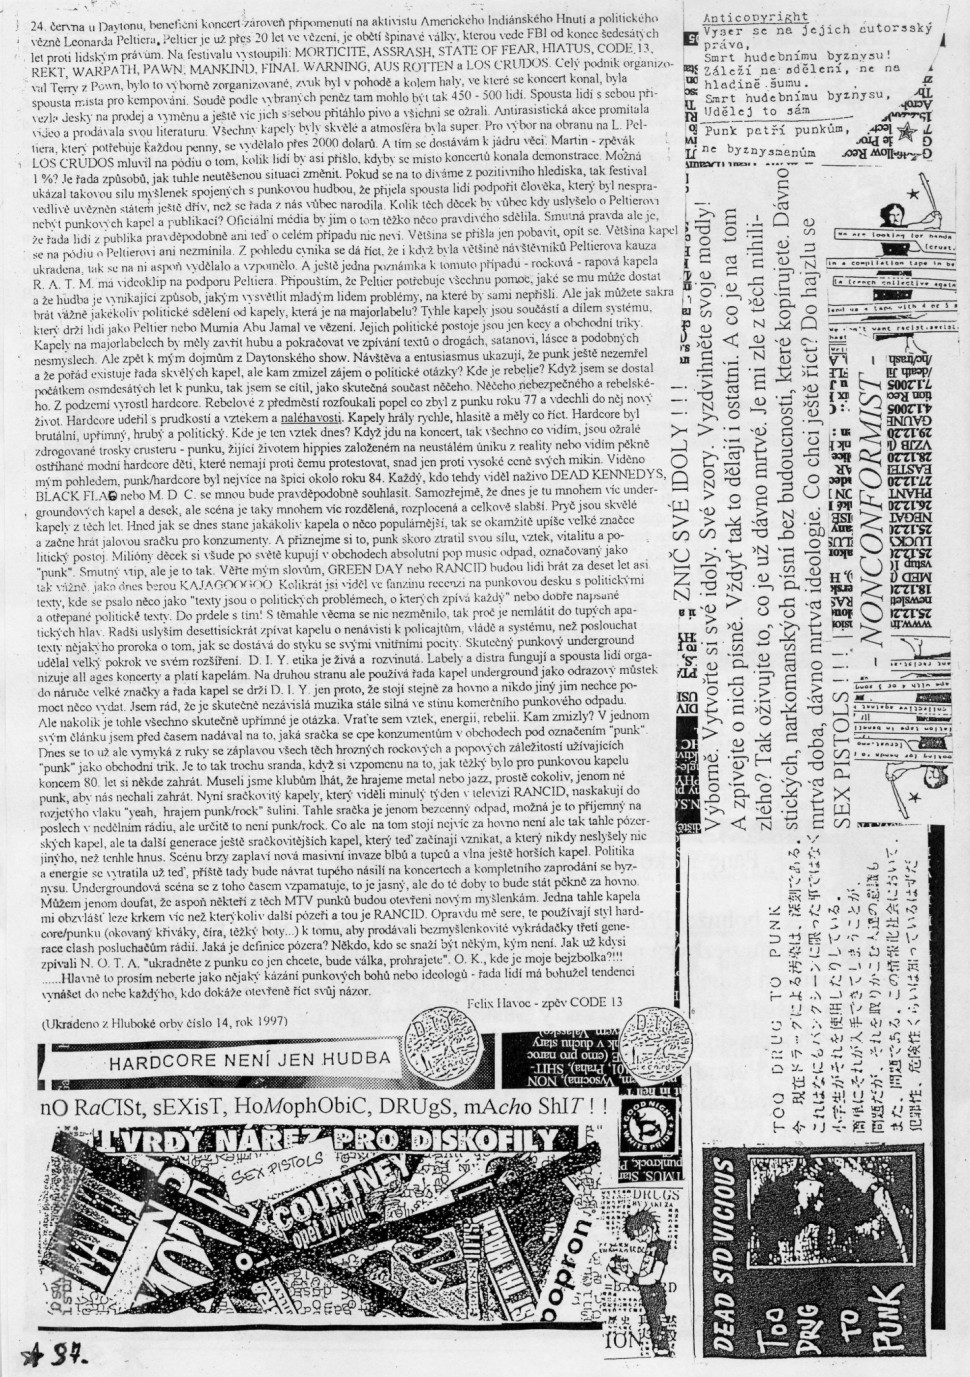 24. června u Daytonu, benefiční koncert zároveň připomenutí na aktivistu Amerického Indiánského Hnutí a politického
vězně Leonarda Peltiera. Peltier je už přes 20 let ve vězení, je obětí špinavé války, kterou vede FBI od konce šedesátých
let proti lidským právům. Na festivalu vystoupili: MORTICITE, ASSRASH, STATE OF FEAR, HIATUS, CODE 13,
REKT, WARPATH, PAWN, MANKIND, FINAL WARNING, AUS ROTTEN a LOS CRUDOS. Celý podnik organizo-
val Terry z Pawn, bylo to výborně zorganizované, zvuk byl v pohodě a kolem haly, ve které se koncert konal, byla
spousta místa pro kempování. Soudě podle vybraných peněz tam mohlo být tak 450 - 500 lidí. Spousta lidí s sebou při-
vezla desky na prodej a výměnu a ještě víc jich s sebou přitáhlo pivo a všichni se ožrali. Antirasistická akce promítala
video a prodávala svou literaturu. Všechny kapely byly skvělé a atmosféra byla super. Pro výbor na obranu na L. Pel-
tiera, který potřebuje každou penny, se vydělalo přes 2000 dolarů. A tím se dostávám k jádru věci. Martin - zpěvák
LOS CRUDOS mluvil na pódiu o tom, kolik lidí by asi přišlo, kdyby se místo koncertů konala demonstrace. Možná
1 %? Je řada způsobů, jak tuhle neutěšenou situaci změnit. Pokud se na to díváme z pozitivního hlediska, tak festival
ukázal takovou sílu myšlenek spojených s punkovou hudbou, že přijela spousta lidí podpořit člověka, který byl nespra-
vedlivě uvězněn státem ještě dřív, než se řada z nás vůbec narodila. Kolik těch děcek by vůbec kdy uslyšelo o Peltierovi
nebýt punkových kapel a publikací? Oficiální média by jim o tom těžko něco pravdivého sdělila. Smutná pravda ale je,
že řada lidí z publika pravděpodobně ani teď o celém případu nic neví. Většina se přišla jen pobavit, opít se. Většina kapel
se na pódiu o Peltierovi ani nezmínila. Z pohledu cynika se dá říct, že i když byla většině návštěvníků Peltierova kauza
ukradena, tak se na ni aspoň vydělalo a vzpomělo. A ještě jedna poznámka k tomuto případu - rocková - rapová kapela
R. A. T. M. má videoklip na podporu Peltiera. Připouštím, že Peltier potřebuje všechnu pomoc, jaké se mu může dostat
a že hudba je vynikající způsob, jakým vysvětlit mladým lidem problémy, na které by sami nepřišli. Ale jak můžete sakra
brát vážně jakékoliv politické sdělení od kapely, která je na majorlabelu? Tyhle kapely jsou součástí a dílem systému,
který drží lidi jako Peltier nebo Mumia Abu Jamal ve vězení. Jejich politické postoje jsou jen kecy a obchodní triky.
Kapely na majorlabelech by měly zavřít hubu a pokračovat ve zpívání textů o drogách, satanovi, lásce a podobných
nesmyslech. Ale zpět k mým dojmům z Daytonského show. Návštěva a entusiasmus ukazují, že punk ještě nezemřel
a že pořád existuje řada skvělých kapel, ale kam zmizel zájem o politické otázky? Kde je rebelie? Když jsem se dostal
počátkem osmdesátých let k punku, tak jsem se cítil, jako skutečná součast něčeho. Něčeho nebezpečného a rebelské-
ho. Z podzemí vyrostl hardcore. Rebelové z předměstí rozfoukali popel co zbyl z punku roku 77 a vdechli do něj nový
život. Hardcore udeřil s prudkostí a vztekem a naléhavostí. Kapely hrály rychle, hlasitě a měly co říct. Hardcore byl
brutální, upřímný, hrubý a politický. Kde je ten vztek dnes? Když jdu na koncert, tak všechno co vidím, jsou ožralé
zdrogované trosky crusteru - punku, žijící životem hippies založeném na neustálém úniku z reality nebo vidím pěkně
ostříhané modní hardcore děti, které nemají proti čemu protestovat, snad jen proti vysoké ceně svých mikin. Viděno
mým pohledem, punk/hardcore byl nejvíce na špici okolo roku 84. Každý, kdo tehdy viděl naživo DEAD KENNEDYS,
BLACK FLAG nebo M. D. C. se mnou bude pravděpodobně souhlasit. Samozřejmě, že dnes je tu mnohem víc under-
groundových kapel a desek, ale scéna je taky mnohem víc rozdělená, rozplocená a celkově slabší. Pryč jsou skvělé
kapely z těch let. Hned jak se dnes stane jakákoliv kapela o něco populárnější, tak se okamžitě upíše velké značce
a začne hrát jalovou sračku pro konzumenty. A přiznejme si to, punk skoro ztratil svou sílu, vztek, vitalitu a po-
litický postoj. Milióny děcek si všude po světě kupují v obchodech absolutní pop music odpad, označovaný jako
"punk". Smutný vtip, ale je to tak. Věřte mým slovům, GREEN DAY nebo RANCID budou lidi brát za deset let asi
tak vážně, jako dnes berou KAJAGOOGOO. Kolikrát jsi viděl ve fanzinu recenzi na punkovou desku s politickými
texty, kde se psalo něco jako "texty jsou o politických problémech, o kterých zpívá každý" nebo dobře napsané
a otřepané politické texty. Do prdele s tím! S těmahle věcma se nic nezměnilo, tak proč je nemlátit do tupých apa-
tických hlav. Radši uslyším desettisíckrát zpívat kapelu o nenávisti k policajtům, vládě a systému, než poslouchat
texty nějakýho proroka o tom, jak se dostává do styku se svými vnitřními pocity. Skutečný punkový underground
udělal velký pokrok ve svém rozšíření. D. I. Y. etika je živá a rozvinutá. Labely a distra fungují a spousta lidí orga-
nizuje all ages koncerty a platí kapelám. Na druhou stranu ale používá řada kapel underground jako odrazový můstek
do náruče velké značky a řada kapel se drží D. I. Y. jen proto, že stojí stejně za hovno a nikdo jiný jim nechce po-
moct něco vydat. Jsem rád, že je skutečně nezávislá muzika stále silná ve stínu komerčního punkového odpadu.
Ale nakolik je tohle všechno skutečně upřímné je otázka. Vraťte sem vztek, energii, rebelii. Kam zmizly? V jednom
svým článku jsem před časem nadával na to, jaká sračka se cpe konzumentům v obchodech pod označením "punk".
Dnes se to už ale vymyká z ruky se záplavou všech těch hrozných rockových a popových záležitostí užívajících
"punk" jako obchodní trik. Je to tak trochu sranda, když si vzpomenu na to, jak těžký bylo pro punkovou kapelu
koncem 80. let si někde zahrát. Museli jsme klubům lhát, že hrajeme metal nebo jazz, prostě cokoliv, jenom né
punk, aby nás nechali zahrát. Nyní sračkovitý kapely, který viděli minulý týden v televizi RANCID, naskakují do
rozjetýho vlaku "yeah, hrajem punk/rock" šulini. Tahle sračka je jenom bezcenný odpad, možná je to příjemný na
poslech v nedělním rádiu, ale určitě to není punk/rock. Co ale na tom stojí nejvíc za hovno není ale tak tahle pózer-
ských kapel, ale ta další generace ještě sračkovitějších kapel, který teď začínají vznikat, a který nikdy neslyšely nic
jinýho, než tenhle hnus. Scénu brzy zaplaví nová masivní invaze blbů a tupců a vlna ještě horších kapel. Politika
a energie se vytratila už teď, příště tady bude návrat tupého násilí na koncertech a kompletního zaprodání se byz-
nysu. Undergroundová scéna se z toho časem vzpamatuje, to je jasný, ale do té doby to bude stát pěkně za hovno.
Můžem jenom doufat, že aspoň někteří z těch MTV punků budou otevřeni novým myšlenkám. Jedna tahle kapela
mi obzvlášť leze krkem víc než kterýkoliv další pózeři a tou je RANCID. Opravdu mě sere, te používají styl hard-
core/punku (okovaný křiváky, číra, těžký boty...) k tomu, aby prodávali bezmyšlenkovité vykrádačky třetí gene-
race clash posluchačům rádií. Jaká je definice pózera? Někdo, kdo se snaží být někým, kým není. Jak už kdysi
zpívali N. O. T. A. "ukradněte z punku co jen chcete, bude válka, prohrajete". O. K., kde je moje bejzbolka?!!!
......Hlavně to prosím neberte jako nějaký kázání punkových bohů nebo ideologů - řada lidí má bohužel tendenci
vynášet do nebe každýho, kdo dokáže otevřeně říct svůj názor.
Felix Havoc - zpěv CODE 13
(Ukradeno z Hluboké orby číslo 14, rok 1997)
HARDCORE NENÍ JEN HUDBA
nO RaCISt, sEXisT, HoMophObiC, DRUgS, mAcho ShIT ! !
TVRDÝ NÁŘEZ PRO DISKOFILY
SEX PISTOLS
COURTNEY
opět hýviní
popron
97.
Anticopyright
Vyser se na jejich autorsský
práva,
Smrt hudebnímu byznysu!
Záleží na sdělení, ne na
hladině šumu.
Smrt hudebnímu byznysu,
Udělej to sám
Punk petří punkům,
ne byznysmenům
ZNIČ SVÉ IDOLY ! ! !
Výborně. Vytvořte si své idoly. Své vzory. Vyzdvihněte svoje modly!
A zpívejte o nich písně. Vždyť tak to dělají i ostatní. A co je na tom
zlého? Tak oživujte to, co je už dávno mrtvé. Je mi zle z těch nihili-
stických, narkomanských písní bez budoucnosti, které kopírujete. Dávno
mrtvá doba, dávno mrtvá ideologie. Co chci ještě říct? Do hajzlu se
SEX PISTOLS ! ! !
- NONCONFORMIST -
We are looking for bands
in a compilation tape
TOO DRUG TO PUNK
今、現在ドラッグによる汚染は、深刻である。
これはなにもパンクシーンに限った事ではなく
小学生がそれを使用したりしている。
簡単にそれが入手できてしまうことが、
問題だが、それを取りかこむ人達の意識も
また、問題である。この情報化社会において、
犯罪性、危険性くらいは知っているはずだ
GOOD NIGHT
WHITE PRIDE
DRUGS
ION
DEAD SID VICIOUS
TOO
DRUG
TO
PUNK